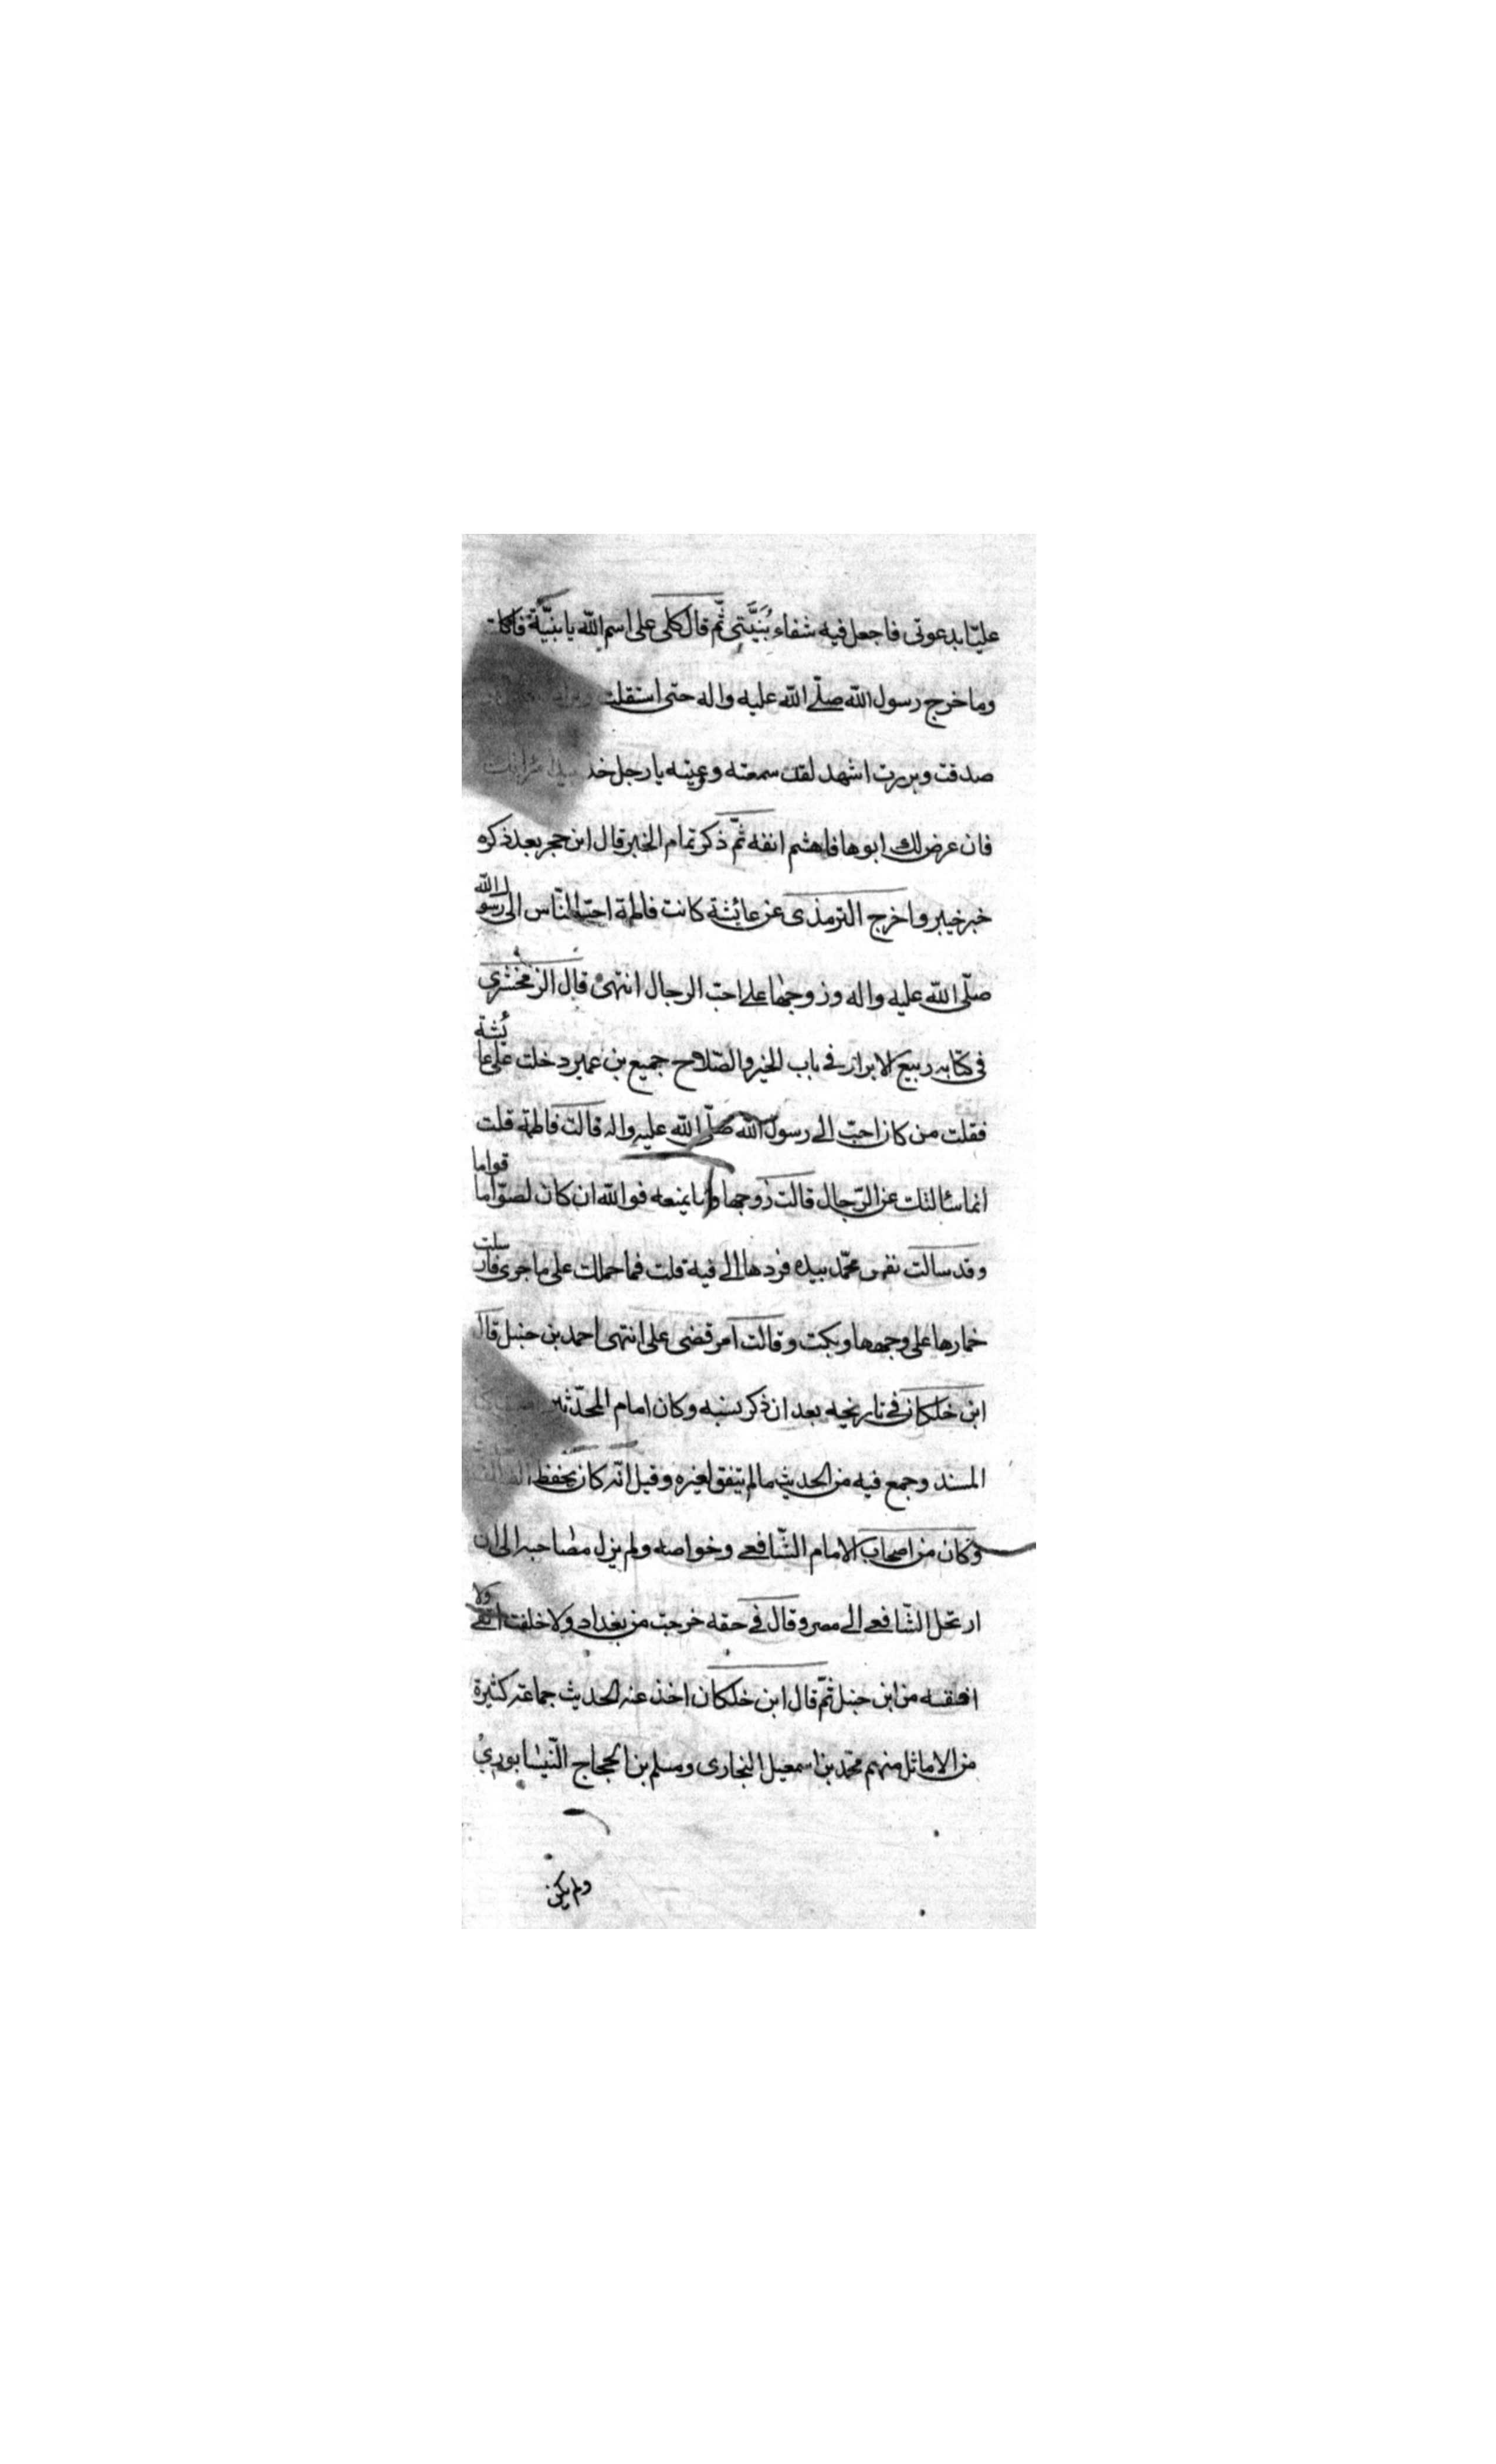 عليّا بدعوتى فاجعل فيه شفاء بُنَيَّتى ثمّ قال كلى على اسم الله يا بنيّة فاكلت
وما خرج رسول الله صلّى الله عليه واله حتى استقلت
صدقت وبررت اشهد لقد سمعته وعيته يا رجل خذ بيد
فان عرض لك ابوها فاهشم انفه ثمّ ذكر تمام الخبر قال ابن حجر بعد ذكره
خبر خيبر واخرج الترمذى عن عائشة كانت فاطمة احبّ النّاس الى رسول الله
صلّى الله عليه واله وزوجها على احبّ الرجال انتهى قال الزمخشرى
فى كتابه ربيع الابرار فى باب الخير والصّلاح جميع بن عمير دخلت على عائشة
فقلت من كان احبّ الى رسول الله صلّى الله عليه واله قالت فاطمة قلت
انما سألتك عن الرّجال قالت زوجها وما يمنعه فوالله ان كان لصوّاما قواما
وقد سالت نفس محمّد بيده فردها الى فيه قلت فما حملك على ما جرى فارسلت
خمارها على وجهها وبكت وقالت امر قضى على انتهى احمد بن حنبل قال
ابن خلكان فى تاريخه بعد ان ذكر نسبه وكان امام المحدّثين
المسند وجمع فيه من الحديث ما لم يتفق لغيره وقيل انّه كان يحفظ الف الف
وكان من اصحاب الامام الشّافعى وخواصه ولم يزل مصاحبه الى ان
ارتحل الشّافعى الى مصر وقال فى حقه خرجت من بغداد ولا خلفت اتقى ولا
افقه من ابن حنبل ثمّ قال ابن خلكان اخذ عنه الحديث جماعة كثيرة
من الاماثل منهم محمّد بن اسمعيل البخارى ومسلم بن الحجاج النّيسابورىُ
ولم يكن